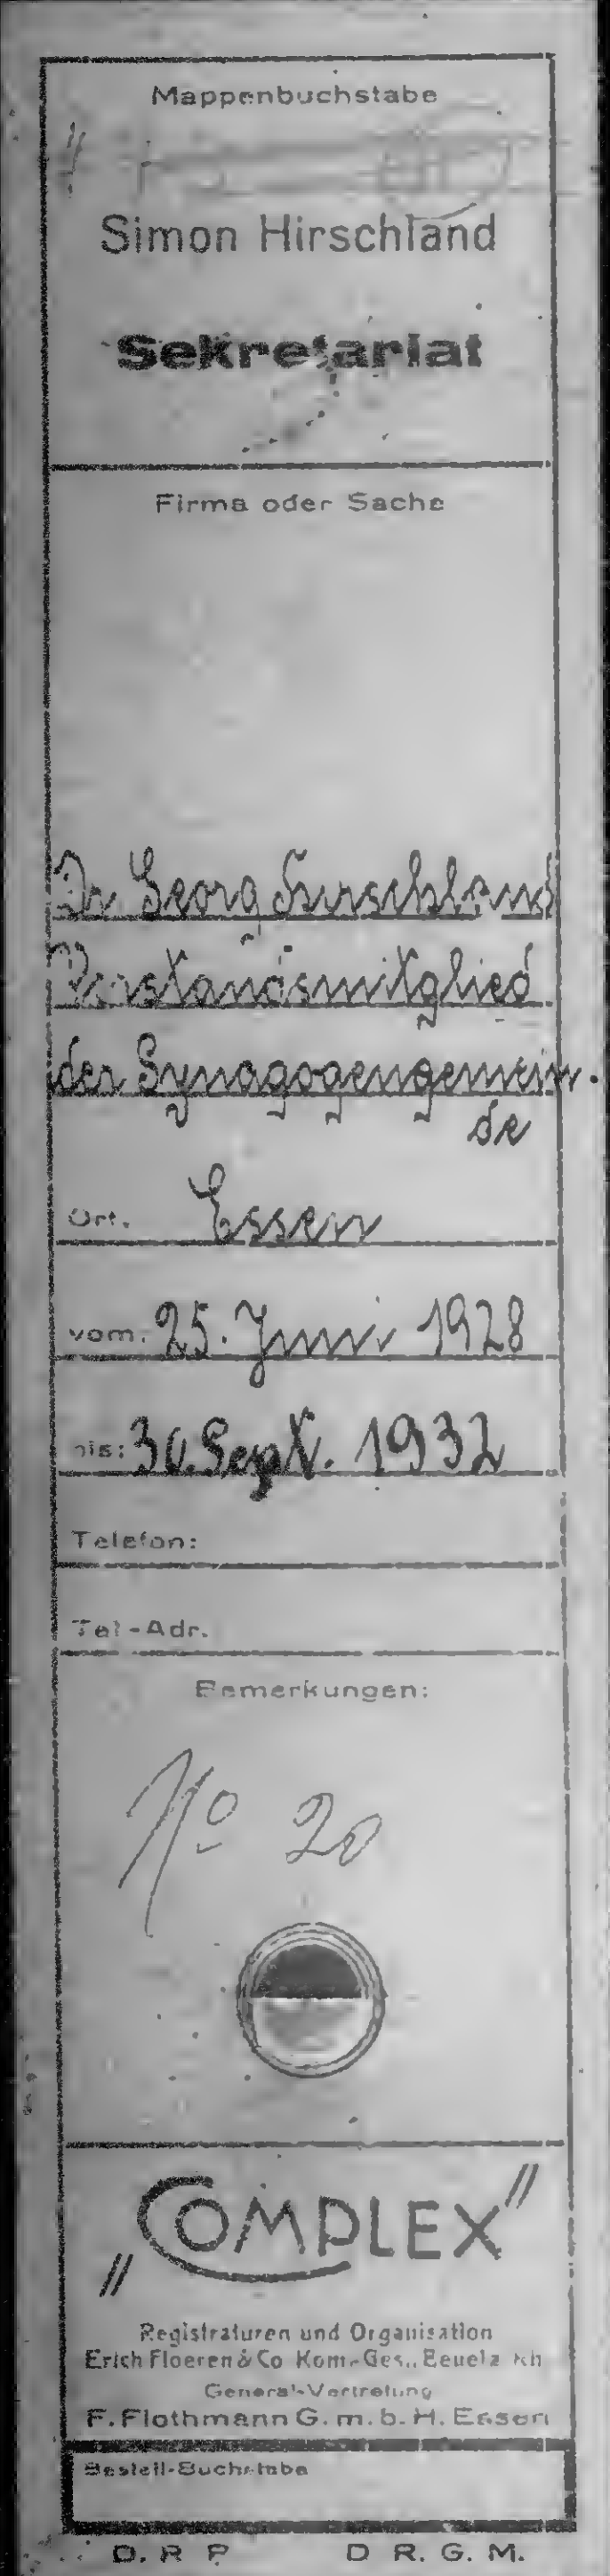 Mappenbuchstabe
Simon Hirschland
Sekretariat
Firma oder Sache
Dr Georg Hirschland
Vorstandsmitglied
der Synagogengemein-
de
Ort. Essen
vom: 25. Juni 1928
bis: 30. Sept. 1932
Telefon:
Tel-Adr.
Bemerkungen:
No 20
„COMPLEX"
Registraturen und Organisation
Erich Floeren & Co Kom.-Ges., Beuel a Rh
General-Vertretung
F. Flothmann G. m. b. H. Essen
Bestell-Buchstabe
D. R P D R. G. M.